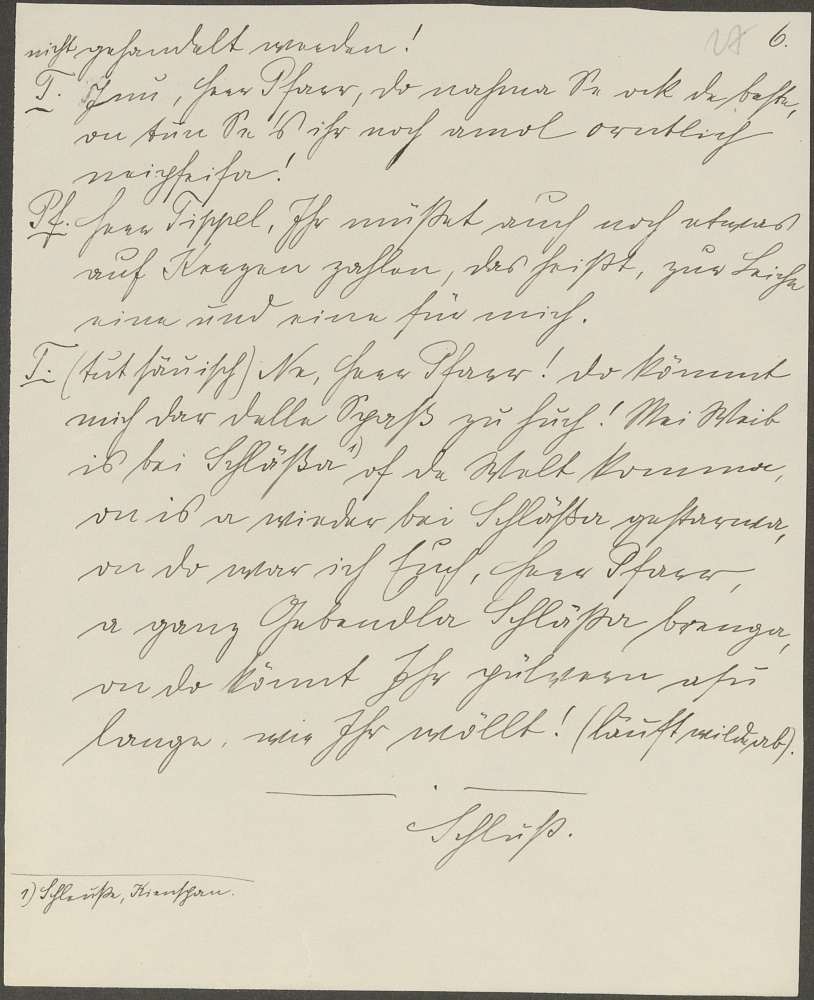 6.
nicht gehandelt werden!
T. Jnu, Herr Pfarr, do nahma Se ock de beste,
on tun Se 's ihr noch amol orntlich
neipfeifa!
Pf. Herr Tippel, Ihr müßet auch noch etwas
auf Kerzen zahlen, das heißt, zur Leiche
eine und eine für mich.
T. (tut häuisch) Ne, Herr Pfarr! do kömmt
mich dar dalle Spaß zu huch! Mei Weib
is bei Schläßa 1) of de Welt komma,
on is a wieder bei Schläßa gestarwa,
on do war ich Euch, Herr Pfarr,
a ganz Gebendla Schläßa brenga,
on do könnt Ihr pülvern asu
lange, wie Ihr wöllt! (läuft wild ab).
Schluß.
1) Schleuße, Kienspan.